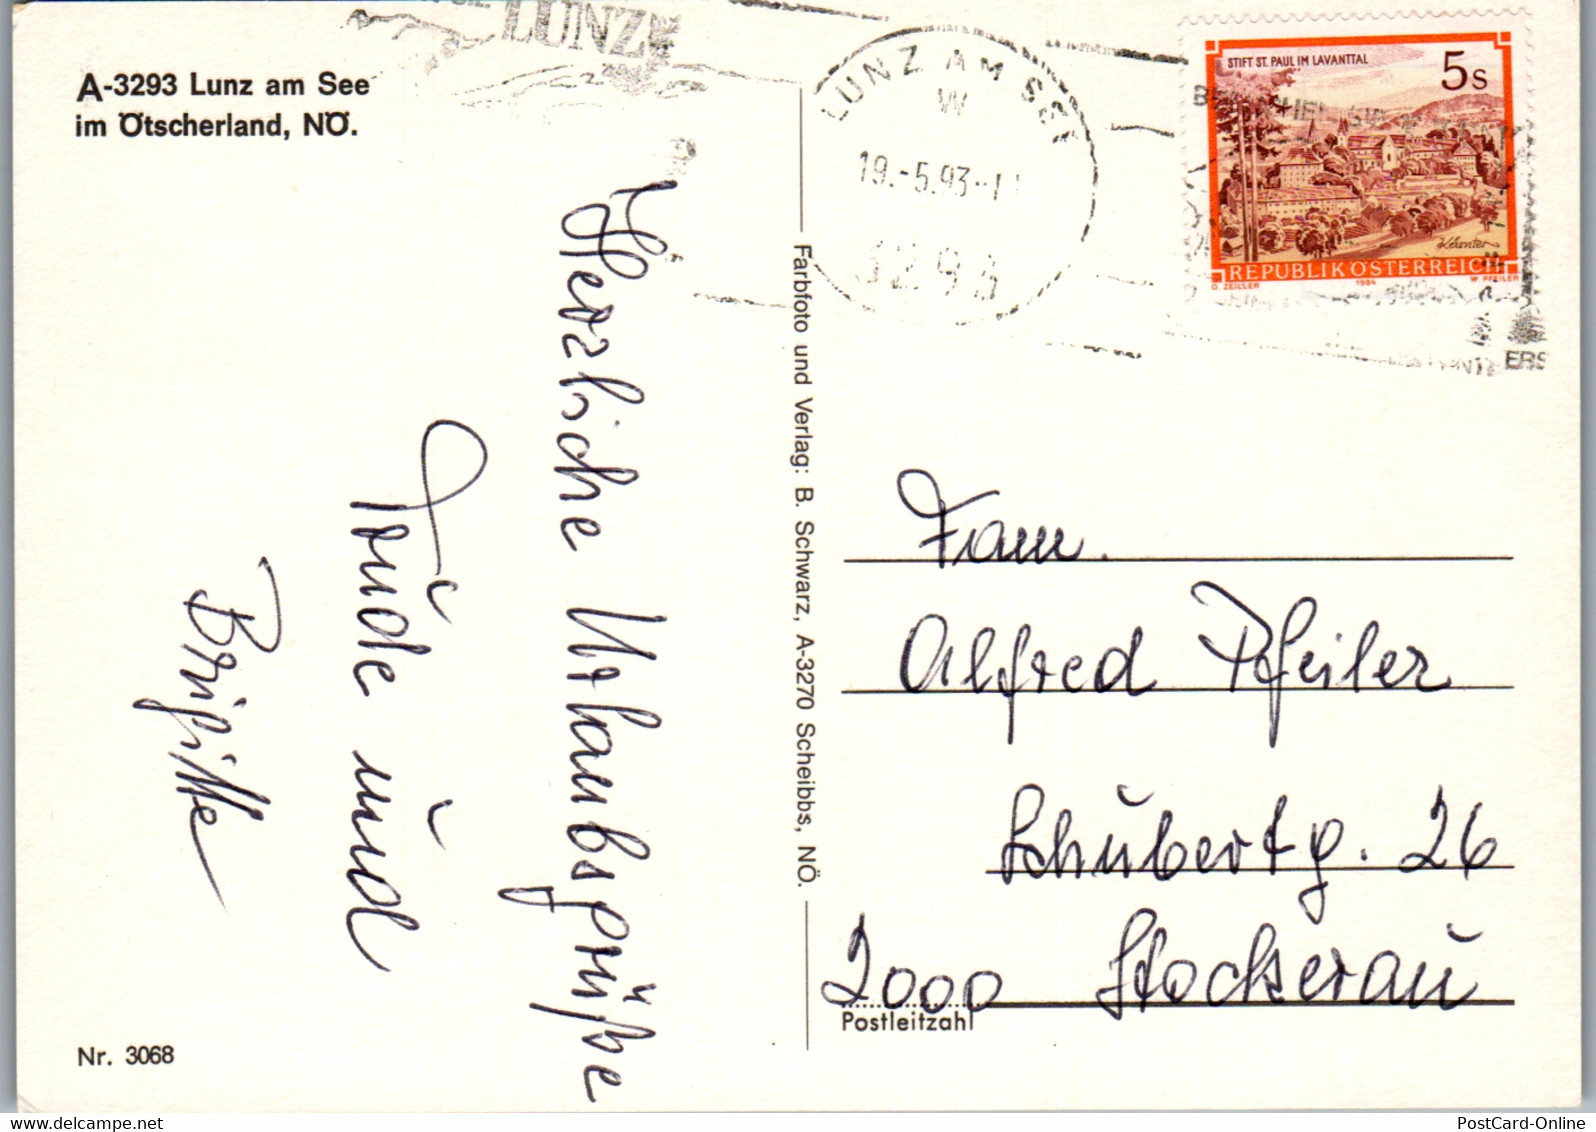 A-3293 Lunz am See
im Ötscherland, NÖ.
LUNZ
LUNZ AM SEE
W
19.-5.93-1
3293
STIFT ST. PAUL IM LAVANTTAL
5s
REPUBLIK ÖSTERREICH
O. ZEILLER 1984 W. PFEILER
ERS
Herzliche Urlaubsgrüße
Trude und
Brigitte
Farbfoto und Verlag: B. Schwarz, A-3270 Scheibbs, NÖ.
Fam.
Alfred Pfeiler
Schubertg. 26
2000 Stockerau
Postleitzahl
Nr. 3068
PostCard-Online